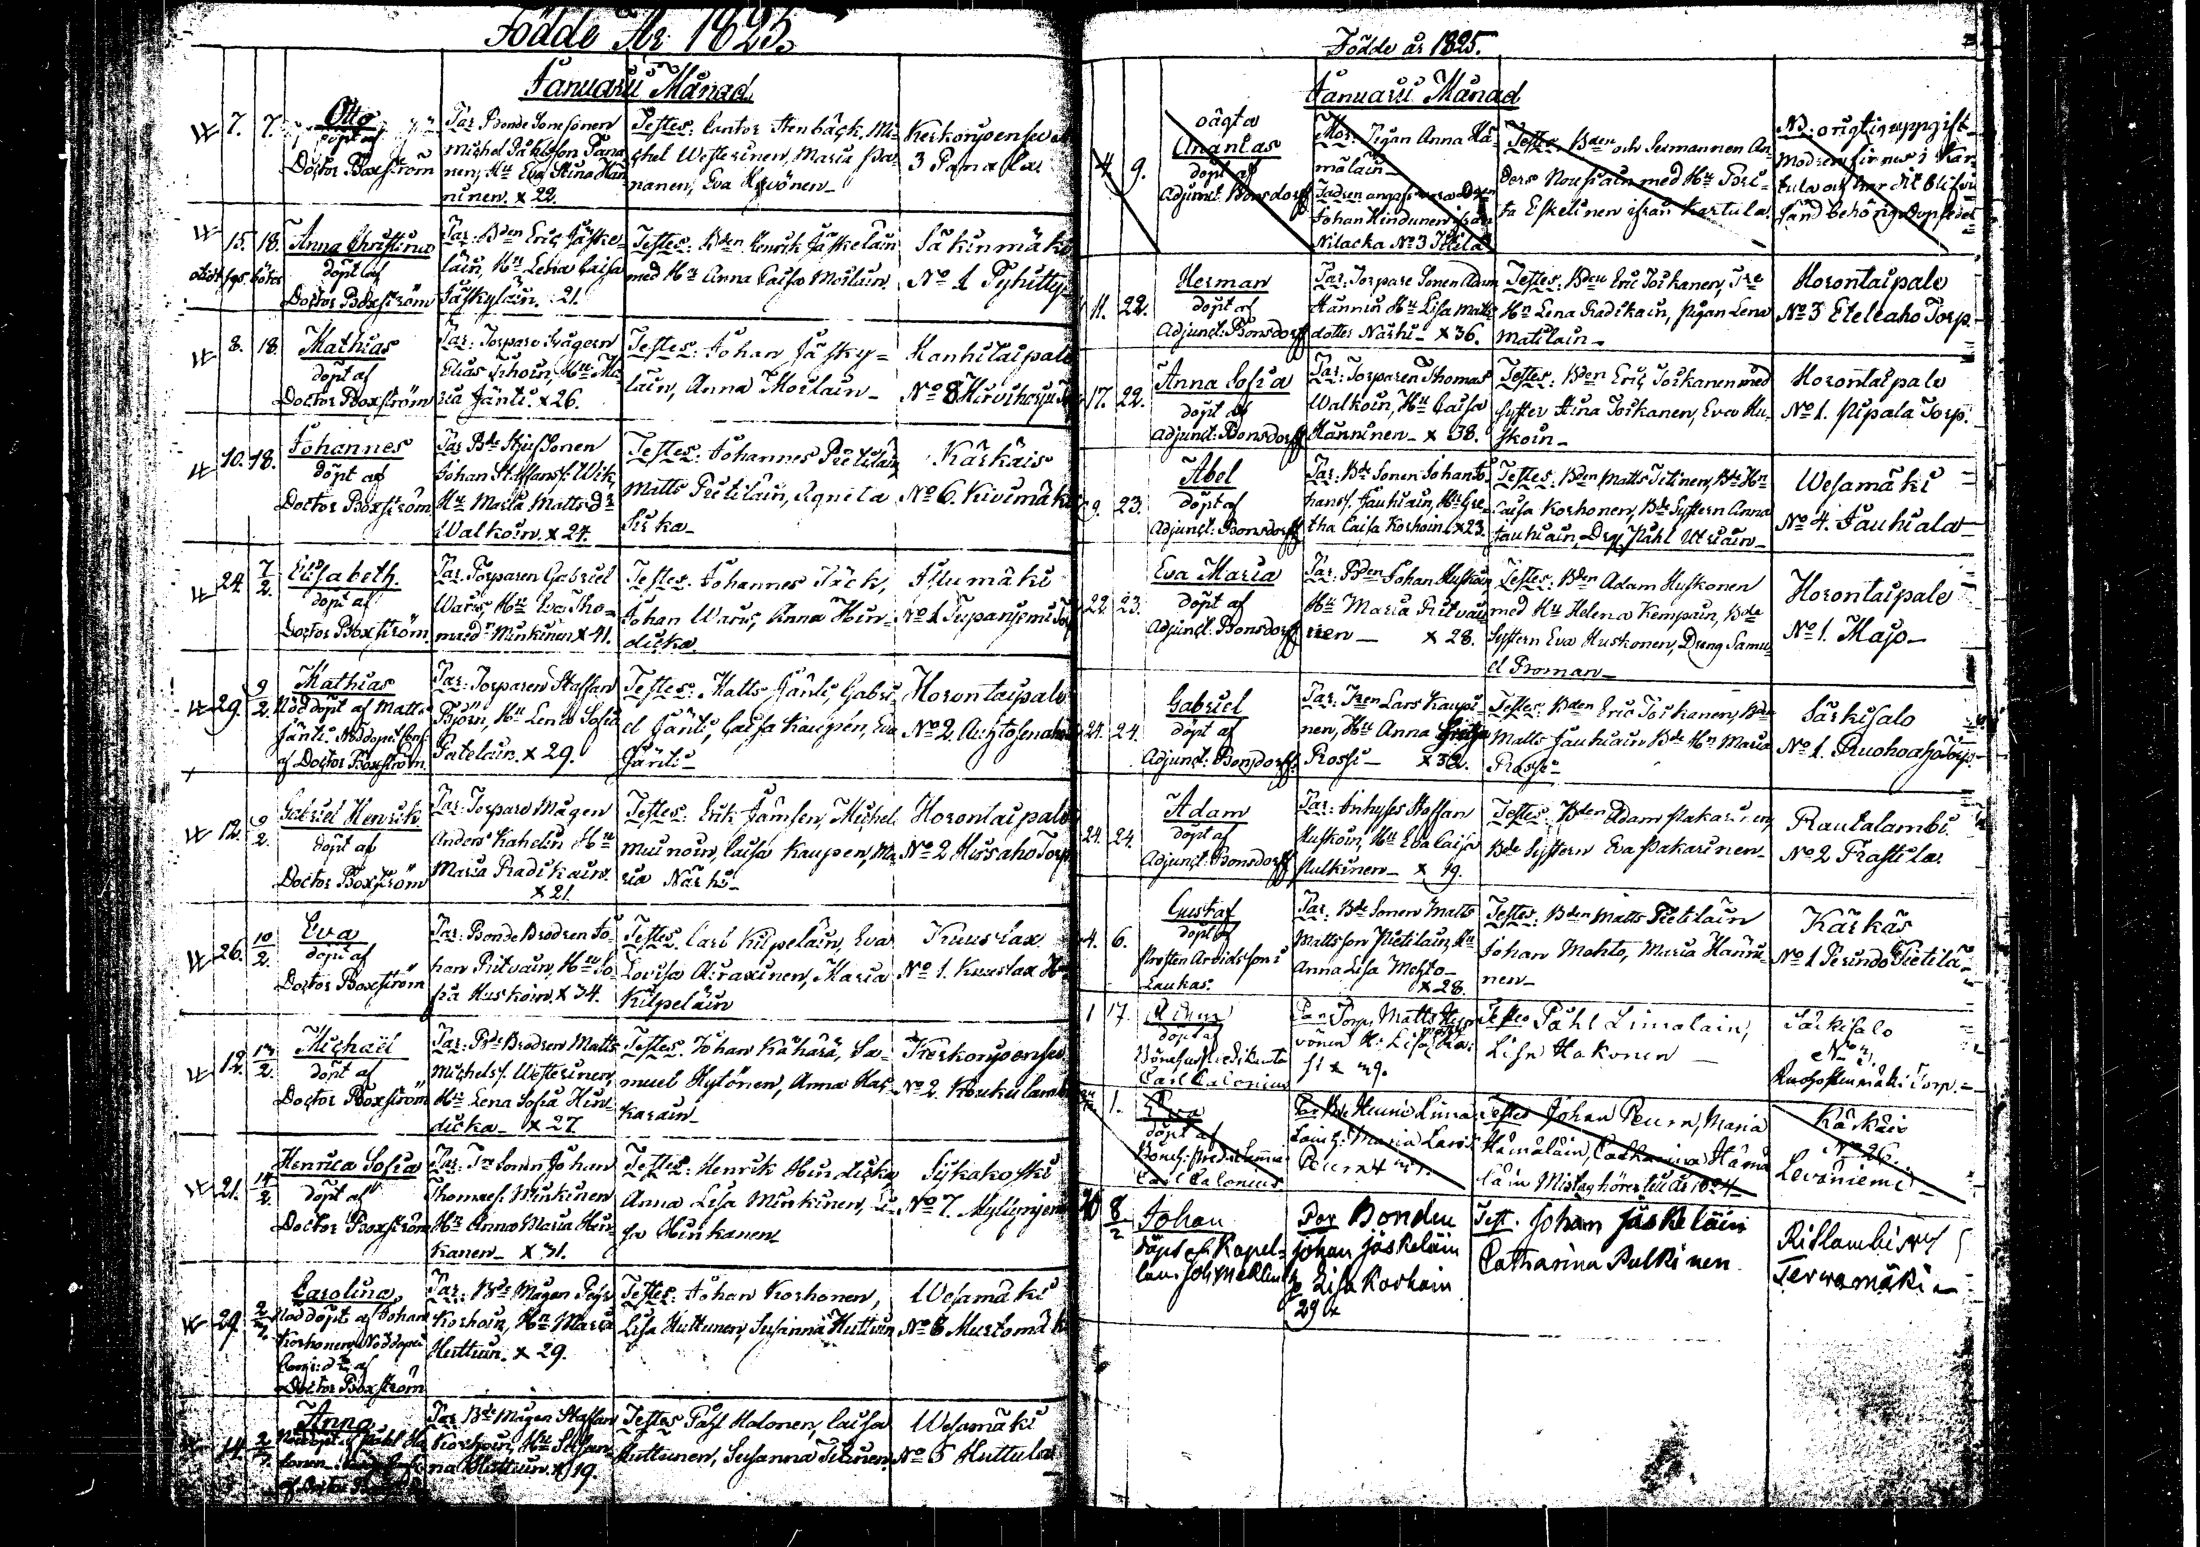 Födde År 1825.
Januarii Månad
7. 7. Otto
döpt af
Doctor Boxström
Par. Bonde Sonesonen
Michel Påhlsson Pana
nen, Hu Eva Stina Hän
ninen. x 22.
Testes: Cantor Stenbäck, Mi-
chel Westerinen, Maria Pa-
nanen, Eva Hyvönen
Kerkonjoensu
3 Panala
15. 18. Anna Christina
döpt af
Doctor Boxström
Par: Bden Eric Jäske-
läin, Hu Lena Caisa
Jäskyläin. 21.
Testes: Bden Henrik Jäskeläin
med Hu Anna Caisa Moilain.
Säkinmäki
No 1 Pyhitty
8. 18. Mathias
döpt af
Doctor Boxström
Par: Torpare Svågern
Elias Ihoin, Hu Ma
ria Jänti. x 26.
Testes: Johan Jäsky-
läin, Anna Moilain
Kanhitaipale
No 8 Hirviharju
10. 18. Johannes
döpt af
Doctor Boxström
Par Bde Styfsonen
Johan Staffans. Wik,
Hu Maria Matts Dr
Walkoin. x 24.
Testes: Johannes Pietiläin
Matts Pietiläin, Agneta
Sirka
Kärkäis
No 6. Kivimäki
24. 7/2. Elisabeth.
döpt af
Doctor Boxström
Par. Torparen Gabriel
Waris, Hu Eva Tho-
masdr Minkinen x 41.
Testes. Johannes Jäck,
Johan Waris, Anna Hin-
dicka.
No 1 Tupaniemi
29. 9/2. Mathias
Nöddöpt af Matts
Jänti. Nöddopet conf.
af Doctor Boxström.
Par: Torparen Staffan
Björn, Hu Lena Sofia
Pateläin. x 29.
Testes: Matts Jänti, Gabri-
el Jänti, Caisa Kaupen, Eva
Jänti
Horontaipale
No 2. Auhtosenaho
12. 9/2. Gabriel Henrik
döpt af
Doctor Boxström
Par: Torpare Mågen
Anders Kahelin Hu
Maria Radikain.
x 21
Testes. Erik Jämsen, Michel
Muinoin, Caisa Kaupen, Ma
ria Närhi
Horontaipale
No 2 Hirsaho Torp
26. 10/2. Eva
döpt af
Doctor Boxström
Par: Bonde Brodren Jo
han Ritvain, Hu So-
fia Huskoin. x 34.
Testes. Carl Kilpeläin, Eva
Lovisa Asraxinen, Maria
Kilpeläin
Kuuslax
No 1. Kuuslax
12. 13/2. Michaël
döpt af
Doctor Boxström
Par: Bde Brodren Matts
Michels. Westerinen,
Hu Lena Sofia Hin-
dicka x 27.
Testes. Johan Kähärä, Sa-
muel Hytönen, Anna Has-
karain
Kerkonjoensu
No 2. Koukulamb
21. 14/2. Henrica Sofia
döpt af
Doctor Boxström
Par: Tre Sonen Johan
Thomass. Minkinen
Hu Anna Maria Hin-
kanen x 31.
Testes: Henrik Hindicka,
Anna Lisa Minkinen, Li-
sa Hinkanen
Sijkakoski
No 7. Myllynjem
29. 2/2. Carolina,
Nöddöpt af Johan
Korhonen, Nöddopet
af
Doctor Boxström
Par: Bde Mågen Pehr
Korhoin, Hu Maria
Huttuin. x 29.
Testes: Johan Korhonen,
Lisa Huttunen, Susanna Huttuin
Wesamäki
No 8 Murtomäki
14. 2/2. Anna
Par Bde Mågen Staffan
Korhoin, Hu Susan-
na Huttuin. x 19.
Testes Påhl Halonen, Caisa
Huttunen, Susanna Titinen
Wesamäki
No 5 Huttula
Födde år 1825.
Januarii Månad
4. 9. oägta
Ananias
döpt af
Adjunct: Bonsdorff
Mor. Pigan Anna Hä-
mäläin
Fadren
Johan Hindunen ifrån
Nilacka No 3 Pihila
Testes. Bden och Sexmannen An-
ders Nousiain med Hu Bri-
ta Eskelinen ifrån Kartula.
NB. origtig uppgift
Modren finnes i Kar-
tula och har dit blifvit
sänd behörig Dopsedel
11. 22. Herman
döpt af
Adjunct: Bonsdorff
Par: Torpare Sonen Adam
Hännin Hu Lisa Matts
dotter Närhi x 36.
Testes: Bden Eric Toikanen, Tre
Hn Lena Radikain, Pigan Lena
Matilain
Horontaipale
No 3 Eteleaho Torp.
17. 22. Anna Sofia
döpt af
Adjunct: Bonsdorff
Par: Torparen Thomas
Walkoin, Hu Caisa
Hänninen x 38.
Testes: Bden Eric Toikanen med
syster Stina Toikanen, Eva Hu-
skoin
Horontaipale
No 1. Pipala Torp.
9. 23. Abel
döpt af
Adjunct: Bonsdorff
Par: Bde Sonen Johan Jo-
hans. Jauhiain, Hu Gre-
tha Caisa Korhoin. x 23.
Testes: Bden Matts Titinen, Bde Hn
Caisa Korhonen, Bde Systern Anna
Jauhiain, Dreng Påhl Utriain
Wesamäki
No 4. Jauhiala
22. 23. Eva Maria
döpt af
Adjunct: Bonsdorff
Par: Bden Johan Huskoin,
Hu Maria Ritvai
nen x 28.
Testes: Bden Adam Huskonen
med Hu Helena Kempain, Bde
Systern Eva Huskonen, Dreng Samu-
el Proman
Horontaipale
No 1. Majo
24. 24. Gabriel
döpt af
Adjunct: Bonsdorff.
Par: Tren Lars Kaupi
nen, Hu Anna
Rossi x 32.
Testes: Bden Eric Toikanen, Bden
Matts Jauhiain Bde Hn Maria
Rossi
Särkisalo
No 1. Ruohoaho Torp.
24. 24. Adam
döpt af
Adjunct: Bonsdorff
Par: Inhyses Staffan
Huskoin, Hu Eva Caisa
Pulkinen x 19.
Testes. Bden Adam Pakarinen,
Bde Systern Eva Pakarinen
Rautalambi
No 2 Frastila
4. 6. Gustaf
döpt af
Prosten Arvidsson i
Laukas.
Par: Bde Sonen Matts
Mattsson Pietiläin, Hu
Anna Lisa Mohto
x 28.
Testes: Bden Matts Pietiläin
Johan Mohto, Maria Hänni-
nen
Kärkäs
No 1 Perindo Pietilä
1 17 Adam
döpt af
Carl Calonius
Par Torp. Matts
vönen H: Lisa
x 29.
Testes Påhl Limalain,
Lisa Hakonen
Särkisalo
No 2,
Torp.
1. Eva
döpt af
Carl Calonius
Maria Lars
Peura x
Testes Johan Peura, Maria
Hämäläin, Catharina Hämä
läin Mistag hörer till år 1824
Kärkäis
No 26.
Leväniemi
10 8/2 Johan
döpt af Kapel-
lan Joh Mellin
Par Bonden
Johan Jäskeläin
h Lisa Korhoin
29 x
Test. Johan Jäskeläin
Catharina Pulkinen
Ritlambi No 1
Terwamäki